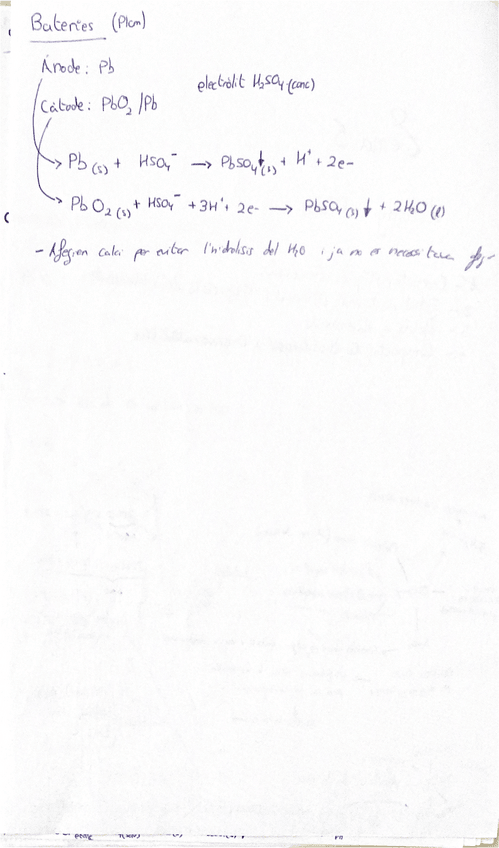 Bateries (Plom)
Ànode: Pb
electròlit H₂SO₄ (conc)
Càtode: PbO₂ / Pb
Pb (s) + HSO₄⁻ → PbSO₄↓(s) + H⁺ + 2e-
PbO₂ (s) + HSO₄⁻ + 3H⁺ + 2e- → PbSO₄ (s) ↓ + 2H₂O (l)
- Afegien calci per evitar l'hidròlisis del H₂O i ja no es necessitava